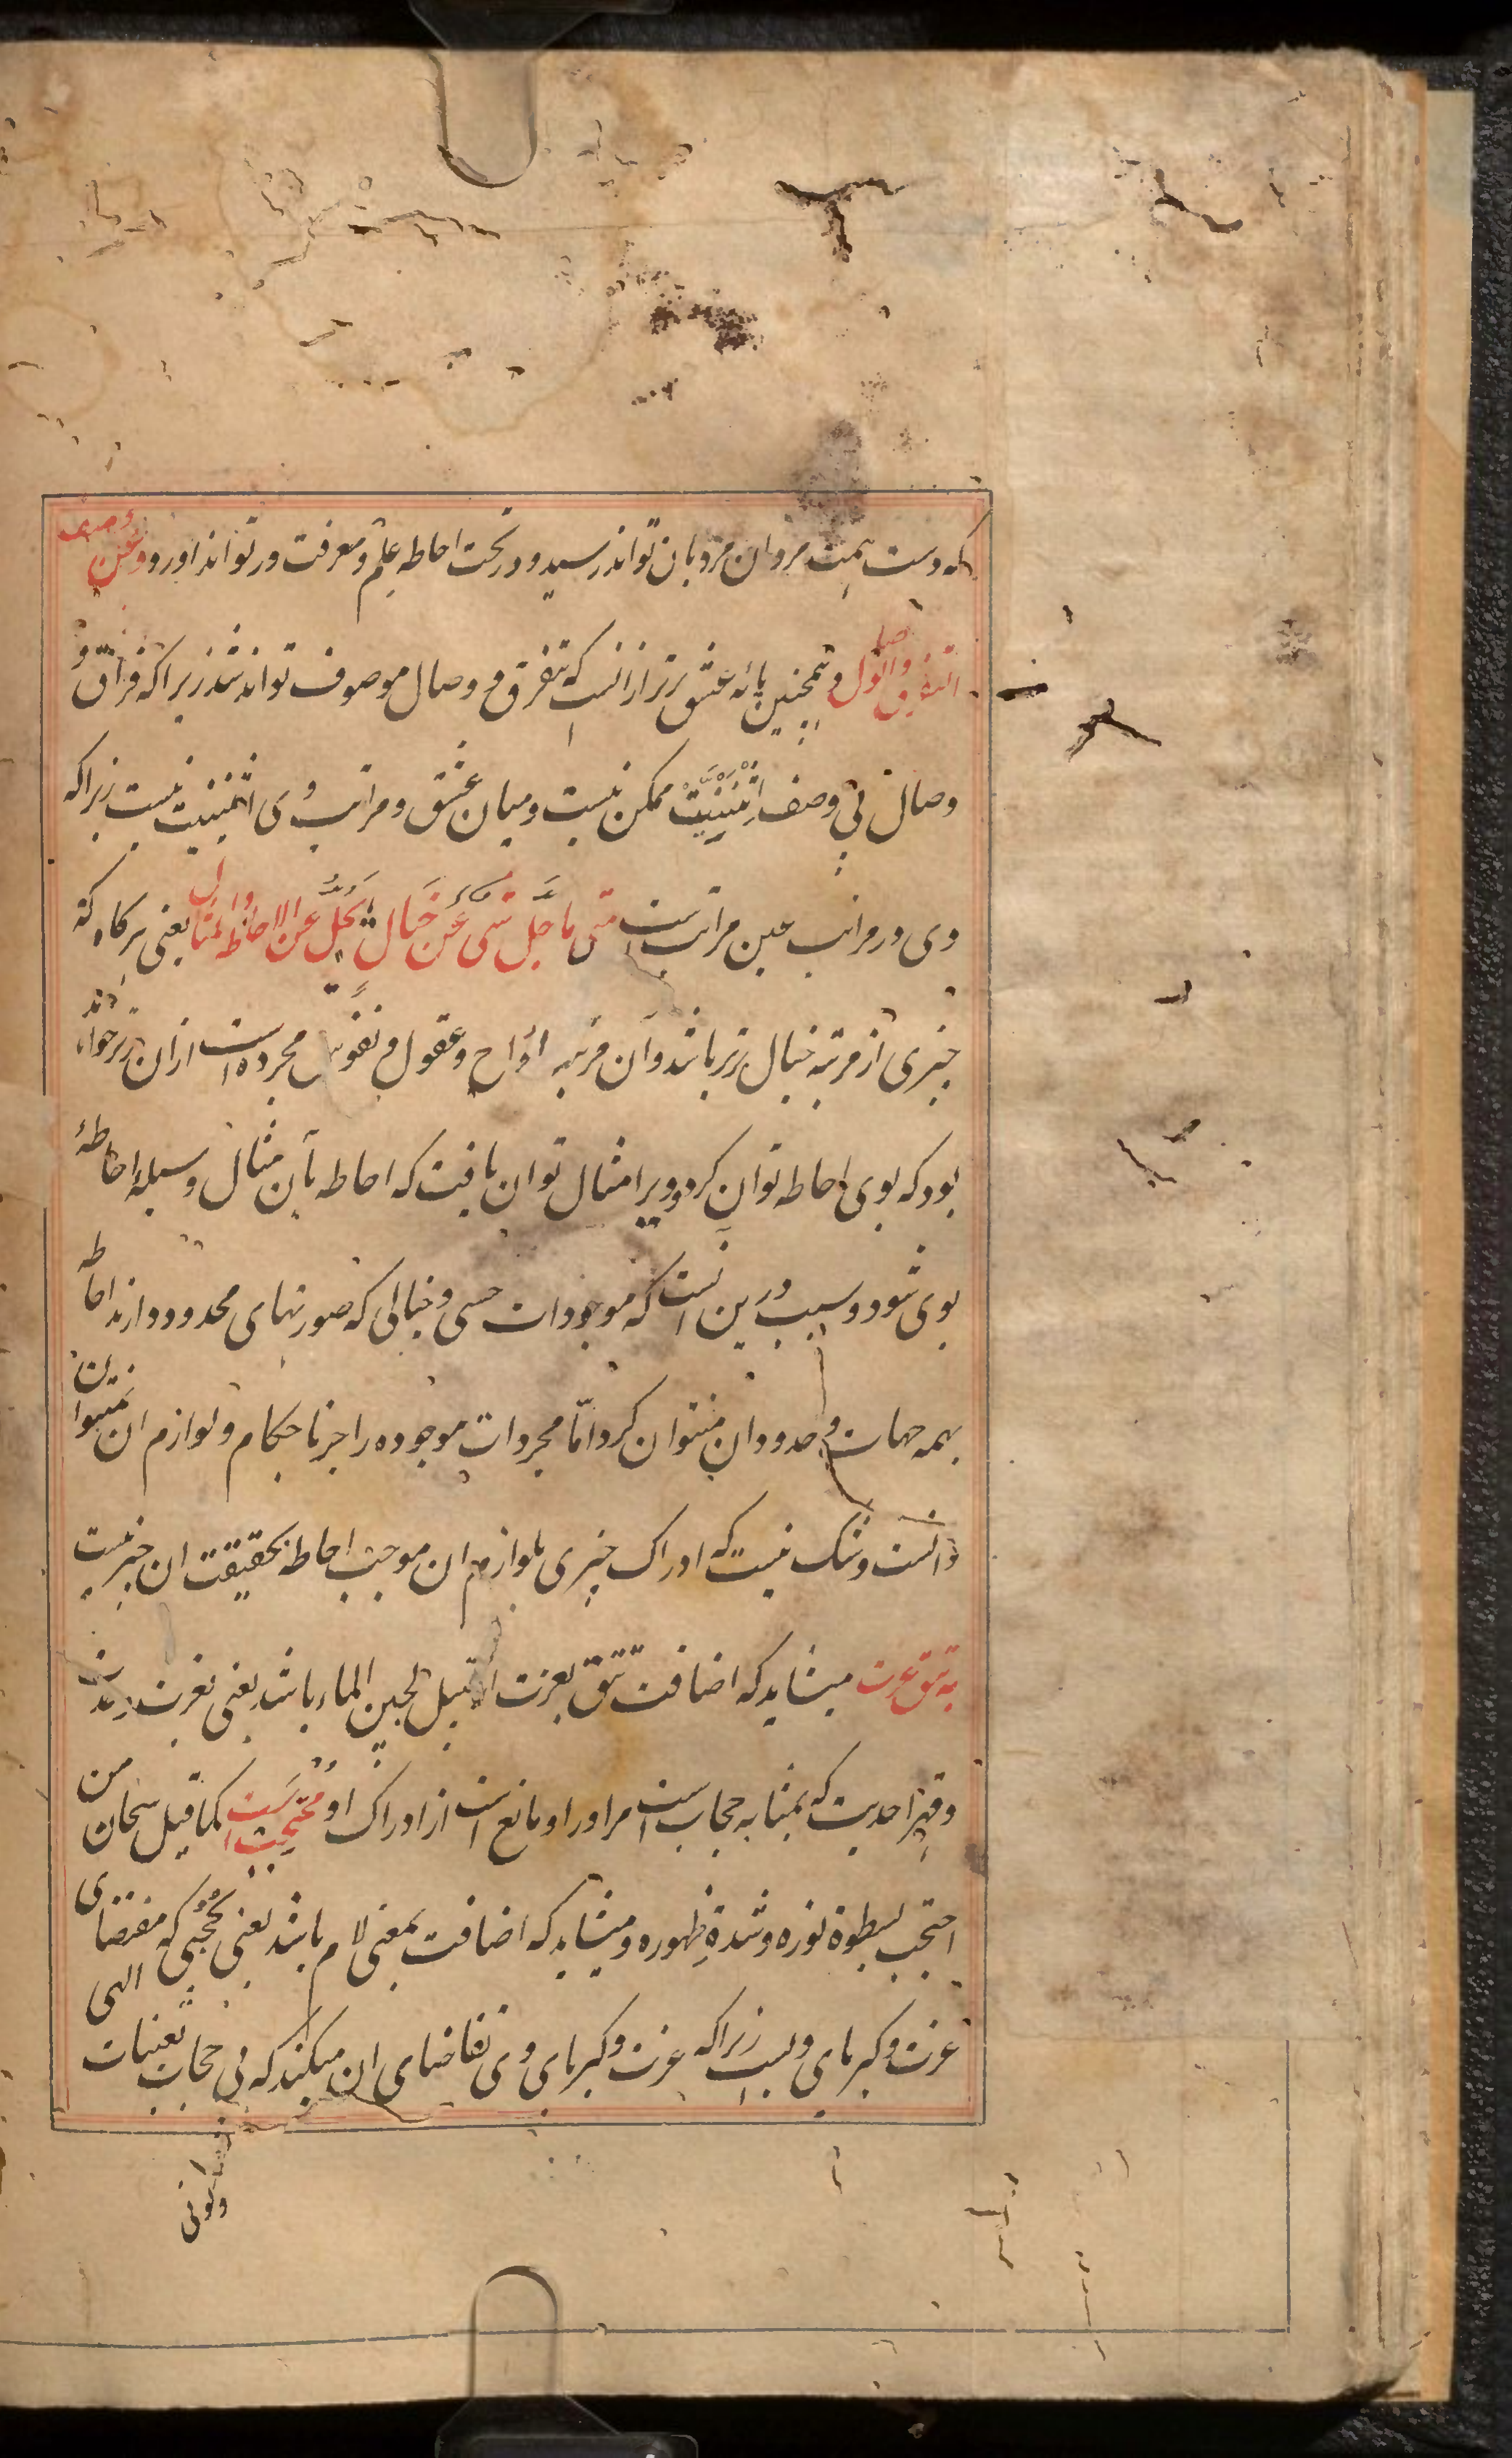 که دست همت مردان مرد بآن تواند رسید و در تحت احاطه علم و معرفت در تواند آورد و عن وصدی
التفرق والوصل و همچنین پایه عشق برتر از انست که بتفرق و وصال موصوف تواند شد زیرا که فراق و
وصال بی وصف اِثْنَیْنِیَّتْ ممکن نیست و میان عشق و مراتب وی اثنینیت نیست زیرا که
وی در مراتب عین مراتب است متی ما جلّ شیء عن خیال یجلّ عن الاحاطة والمثال یعنی هر گاه که
چیزی از مرتبه خیال برتر باشد و آن مرتبه ارواح و عقول و نفوس مجرده است از آن برتر خواهد
بود که بوی احاطه توان کرد و ویرا مثال توان یافت که احاطه بآن مثال وسیله احاطهٔ
بوی شود و سبب درین انست که موجودات حسی و خیالی که صورتهای محدود دارند احاطه
بهمه جهات و حدود ان میتوان کرد امّا مجردات موجوده را جز باحکام و لوازم ان نمیتوان
دانست و شک نیست که ادراک چیزی بلوازم ان موجب احاطه بحقیقت ان چیز نیست
به تتق عزت میشاید که اضافت تتق بعزت از قبیل لجین الماء باشد یعنی بعزت وحدت
و قهر احدیت که بمثابه حجاب است مر اورا و مانع است از ادراک او محتجب است کما قیل سبحان من
احتجب بسطوة نوره و شدةِ ظهوره و میشاید که اضافت بمعنی لام باشد یعنی بحُجُبی که مقتضای
عزت و کبریای ویست زیرا که عزت و کبریای وی تقاضای ان میکند که بی حجاب تعینات الهی
وکونی